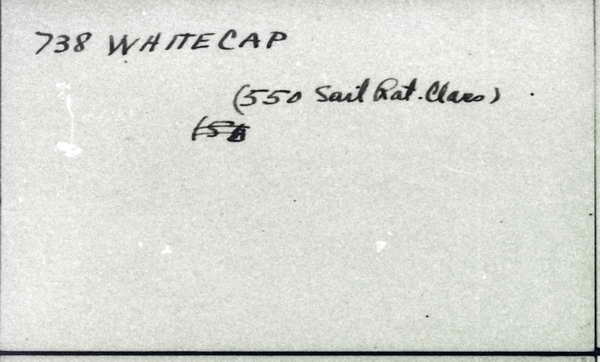 738 WHITECAP
(550 Sail Rat. Class)